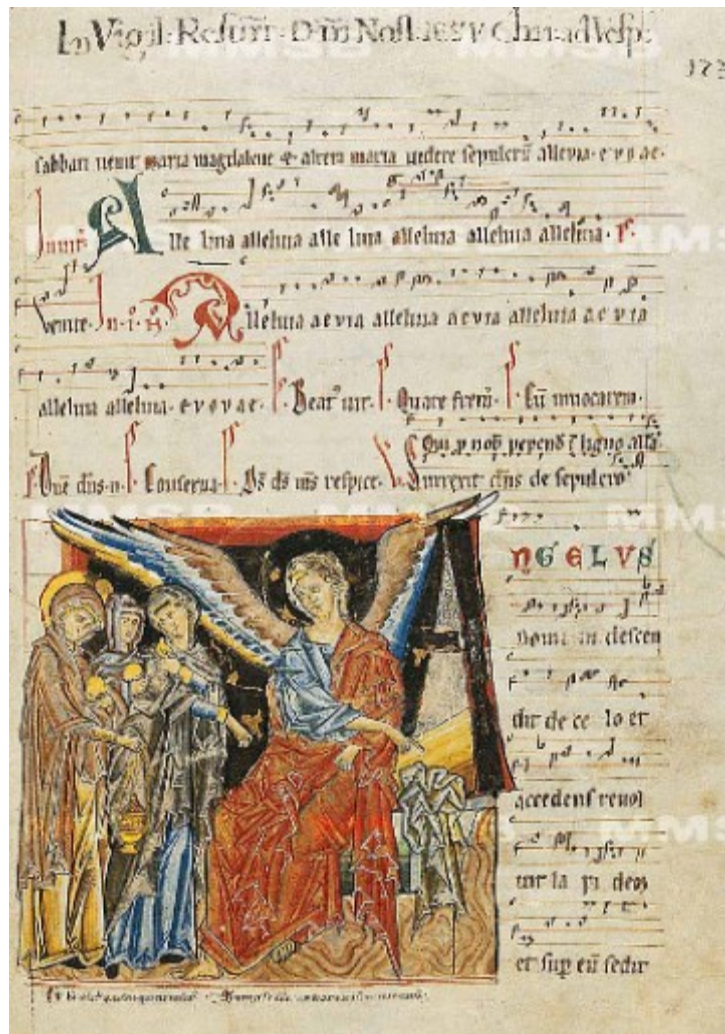 In Vigil: Resurr: Dni Nost: IESV Chri: ad Vesp:
173
sabbati uenit maria magdalene & altera maria uidere sepulcru alleuia. e v o v ae.
Inuit Alle luia alleluia alle luia alleluia alleluia alleluia. p.
Venite. In .i. N. Alleluia aevia alleluia aevia alleluia aevia
alleluia alleluia. e v o v ae. Beat' uir. Quare frem. Cu inuocarem.
Qui p nob pepend i ligno alla
Dne dns n. Conserua. Ds ds ms respice. Surrexit dns de sepulcro
NGELVS
domi ni descen
dit de ce lo et
accedens reuol
uit la pi dem
et sup eu sedit